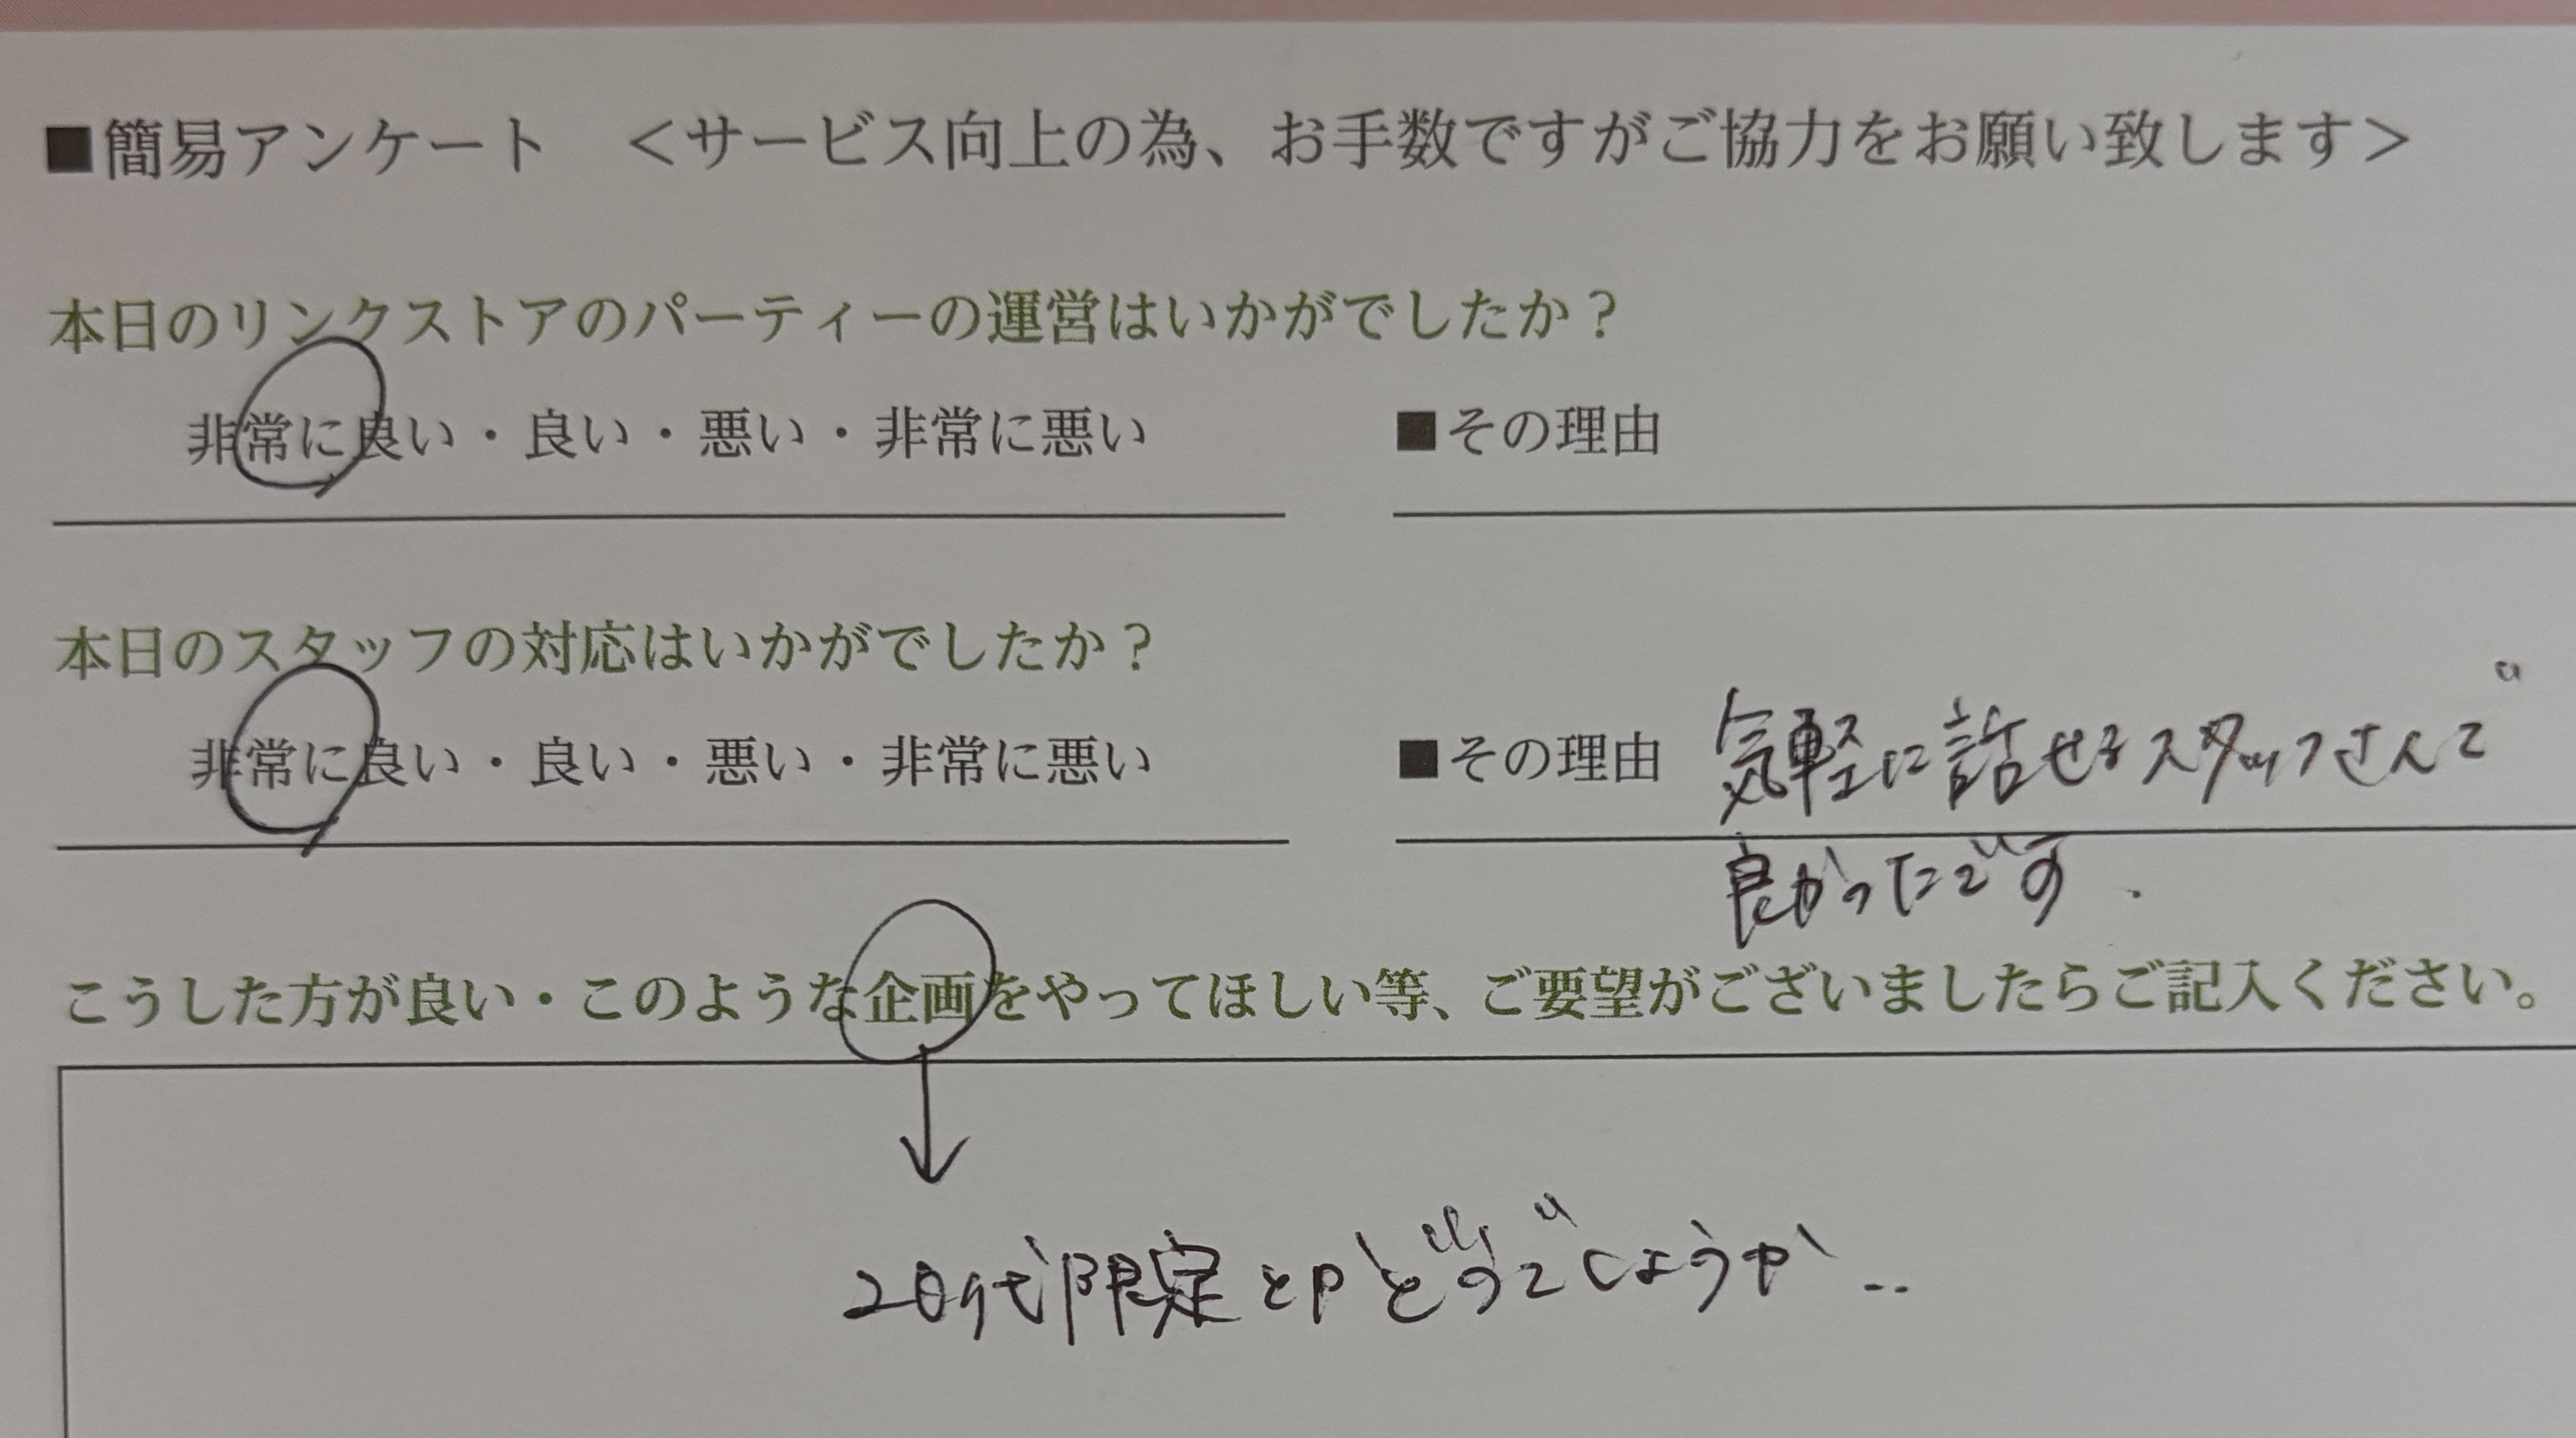 ■簡易アンケート <サービス向上の為、お手数ですがご協力をお願い致します>
本日のリンクストアのパーティーの運営はいかがでしたか？
非常に良い・良い・悪い・非常に悪い ■その理由
本日のスタッフの対応はいかがでしたか？
非常に良い・良い・悪い・非常に悪い ■その理由 気軽に話せるスタッフさんで
良かったです.
こうした方が良い・このような企画をやってほしい等、ご要望がございましたらご記入ください。
↓
20代限定とかどうでしょうか..